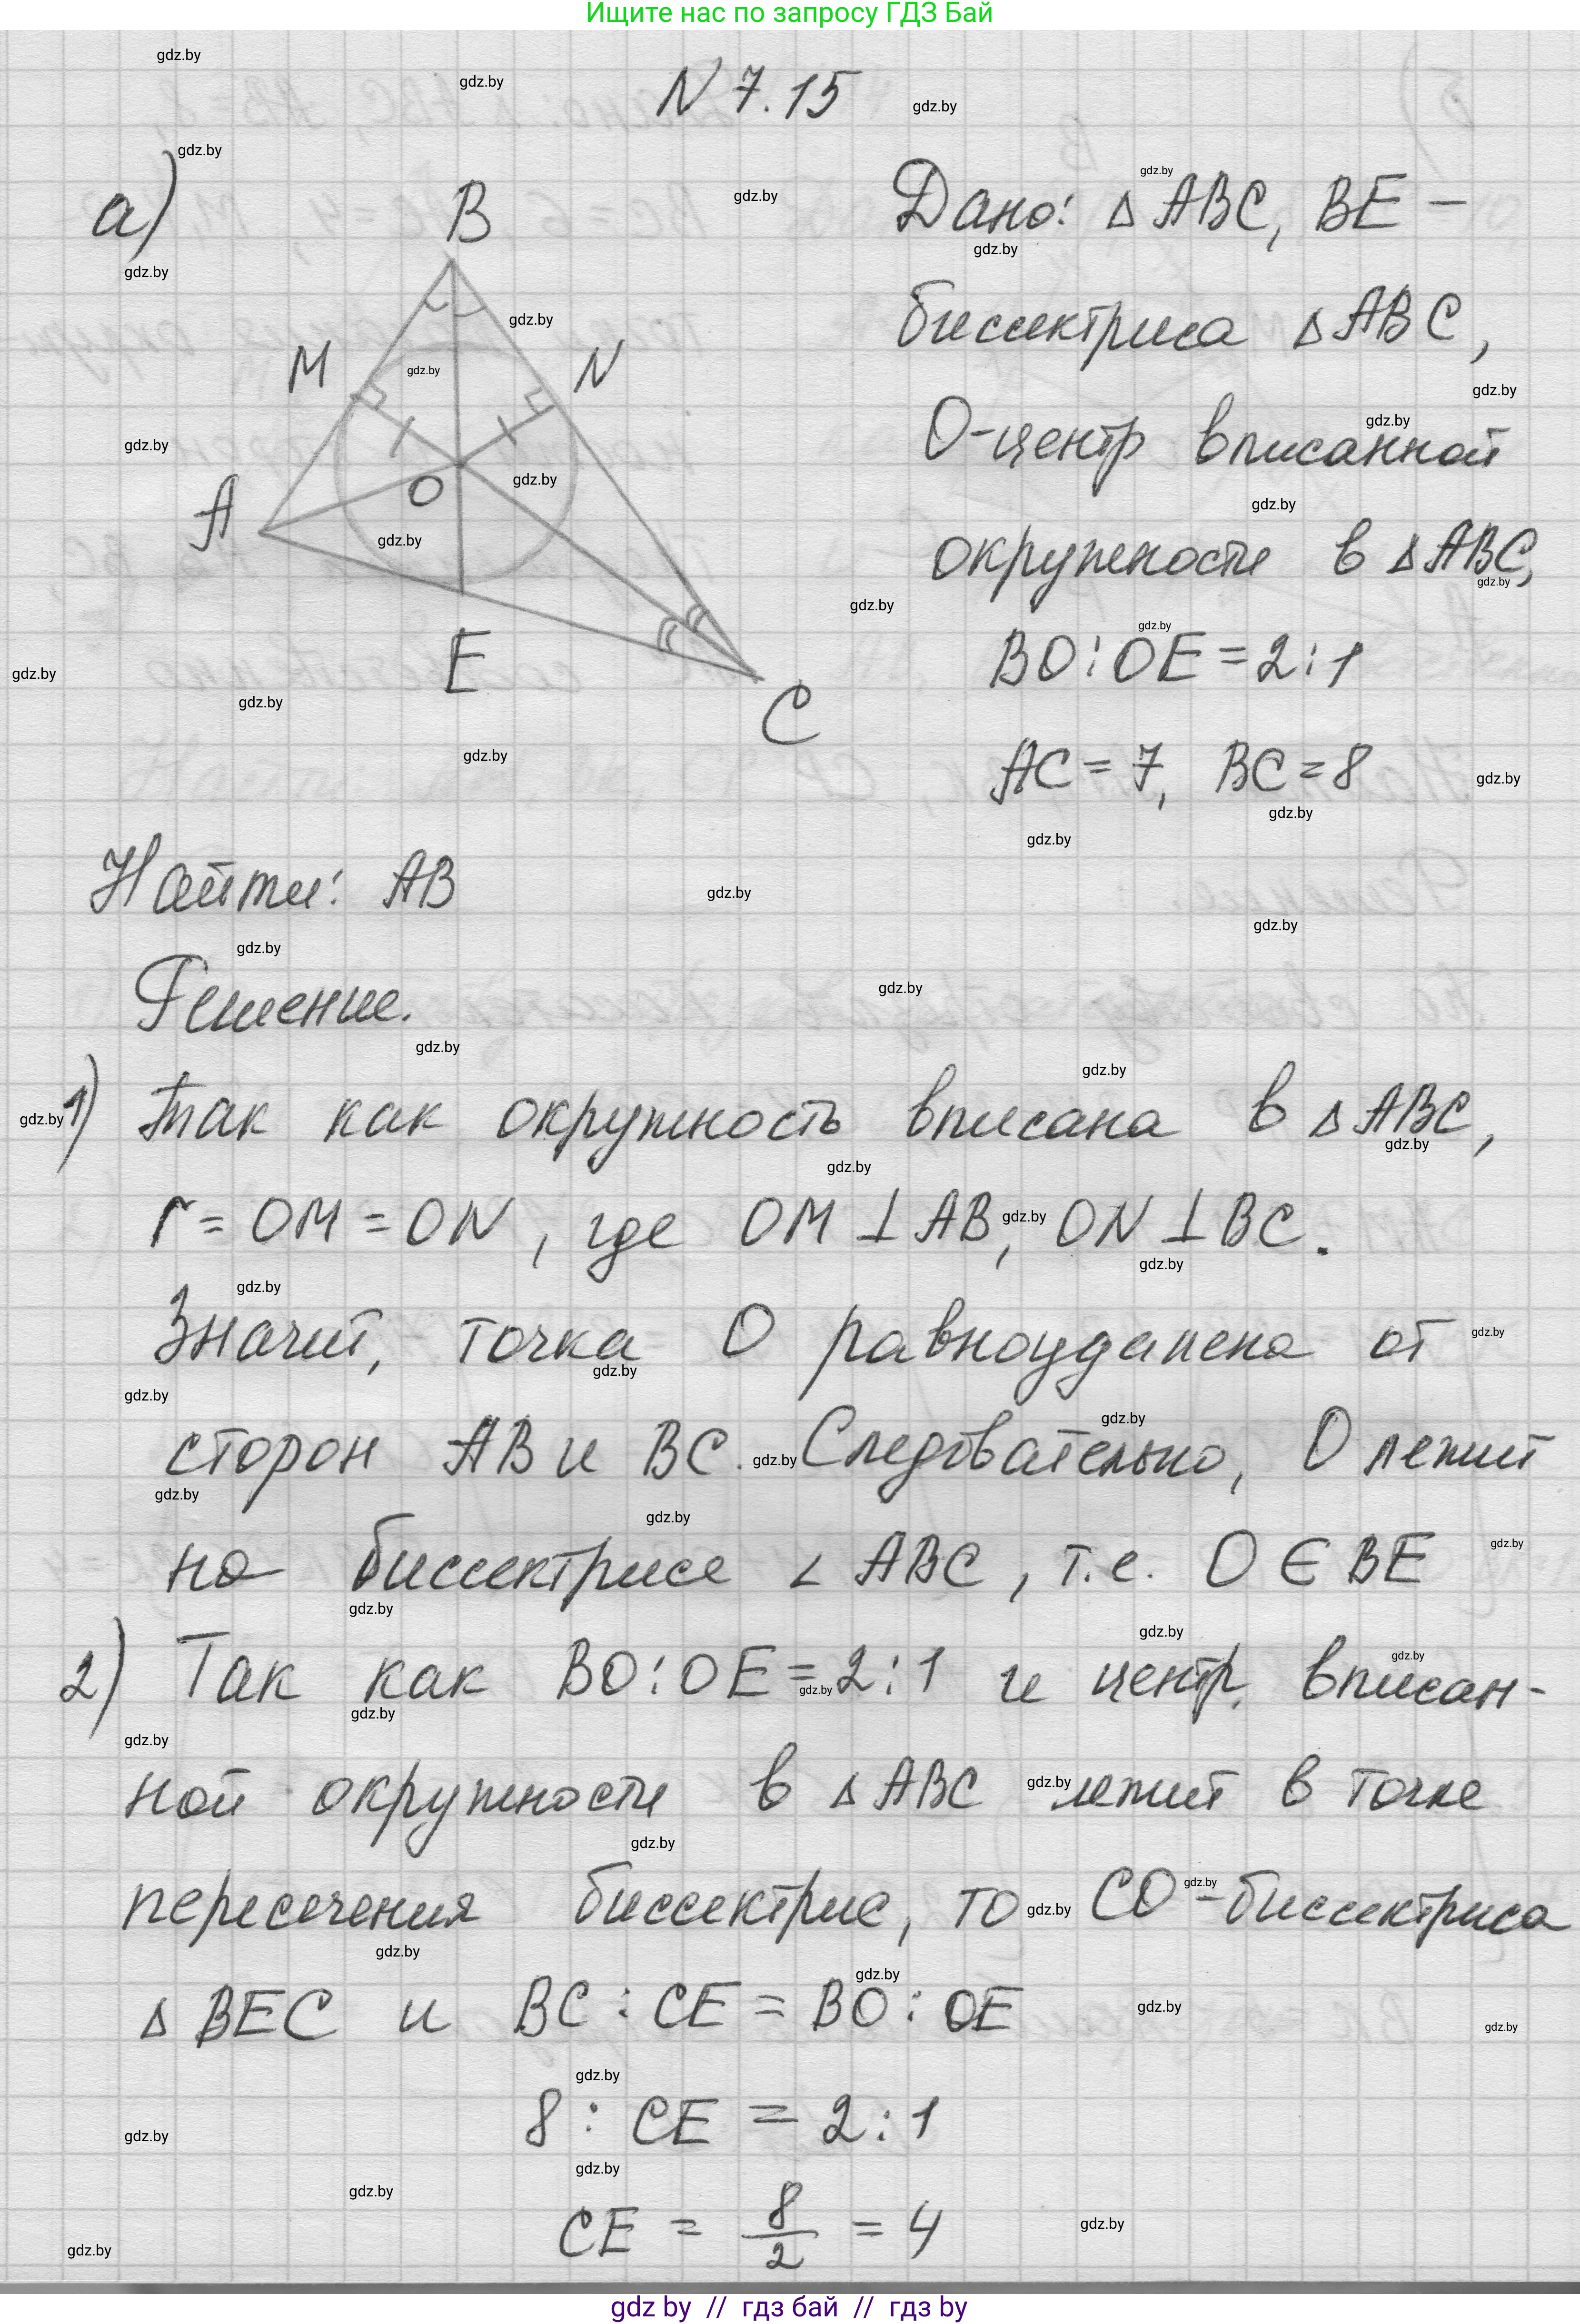 Ищите нас по запросу ГДЗ Бай
N 7.15
а)
B
M
N
A
O
E
C
Дано: △ABC, BE –
биссектриса △ABC,
O-центр вписанной
окружности в △ABC,
BO:OE=2:1
AC=7, BC=8
Найти: AB
Решение.
1) Так как окружность вписана в △ABC,
r=OM=ON, где OM⊥AB, ON⊥BC.
Значит, точка O равноудалена от
сторон AB и BC. Следовательно, O лежит
на биссектрисе ∠ABC, т.е. O∈BE
2) Так как BO:OE=2:1 и центр вписан-
ной окружности в △ABC лежит в точке
пересечения биссектрис, то CO-биссектриса
△BEC и BC:CE=BO:OE
8:CE=2:1
CE = 8/2 = 4
gdz by // гдз бай // гдз by